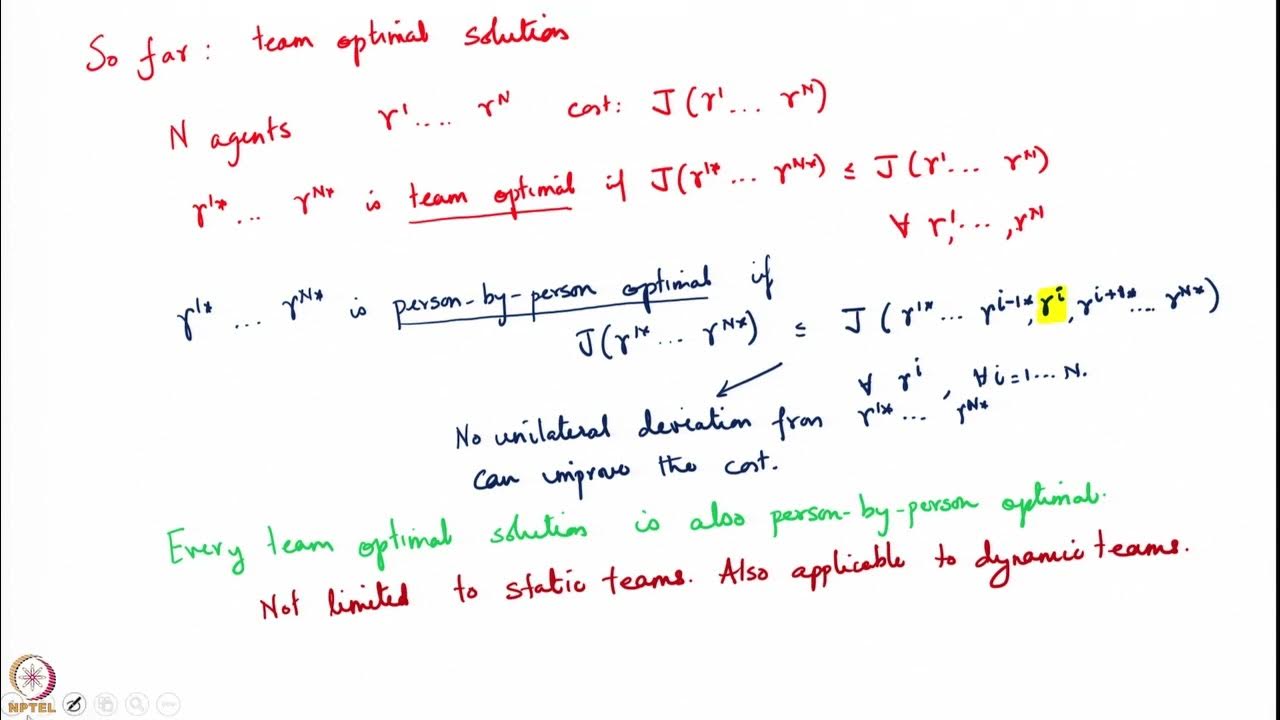 So far: team optimal solution
N agents γ¹ .... γᴺ cost: J(γ¹ ... γᴺ)
γ¹* ... γᴺ* is team optimal if J(γ¹* ... γᴺ*) ≤ J(γ¹ ... γᴺ)
∀ γ¹, ..., γᴺ
γ¹* ... γᴺ* is person-by-person optimal if
J(γ¹* ... γᴺ*) ≤ J(γ¹* ... γⁱ⁻¹*, γⁱ, γⁱ⁺¹* .... γᴺ*)
∀ γⁱ, ∀ i = 1 ... N.
No unilateral deviation from γ¹* ... γᴺ*
can improve the cost.
Every team optimal solution is also person-by-person optimal.
Not limited to static teams. Also applicable to dynamic teams.
NPTEL